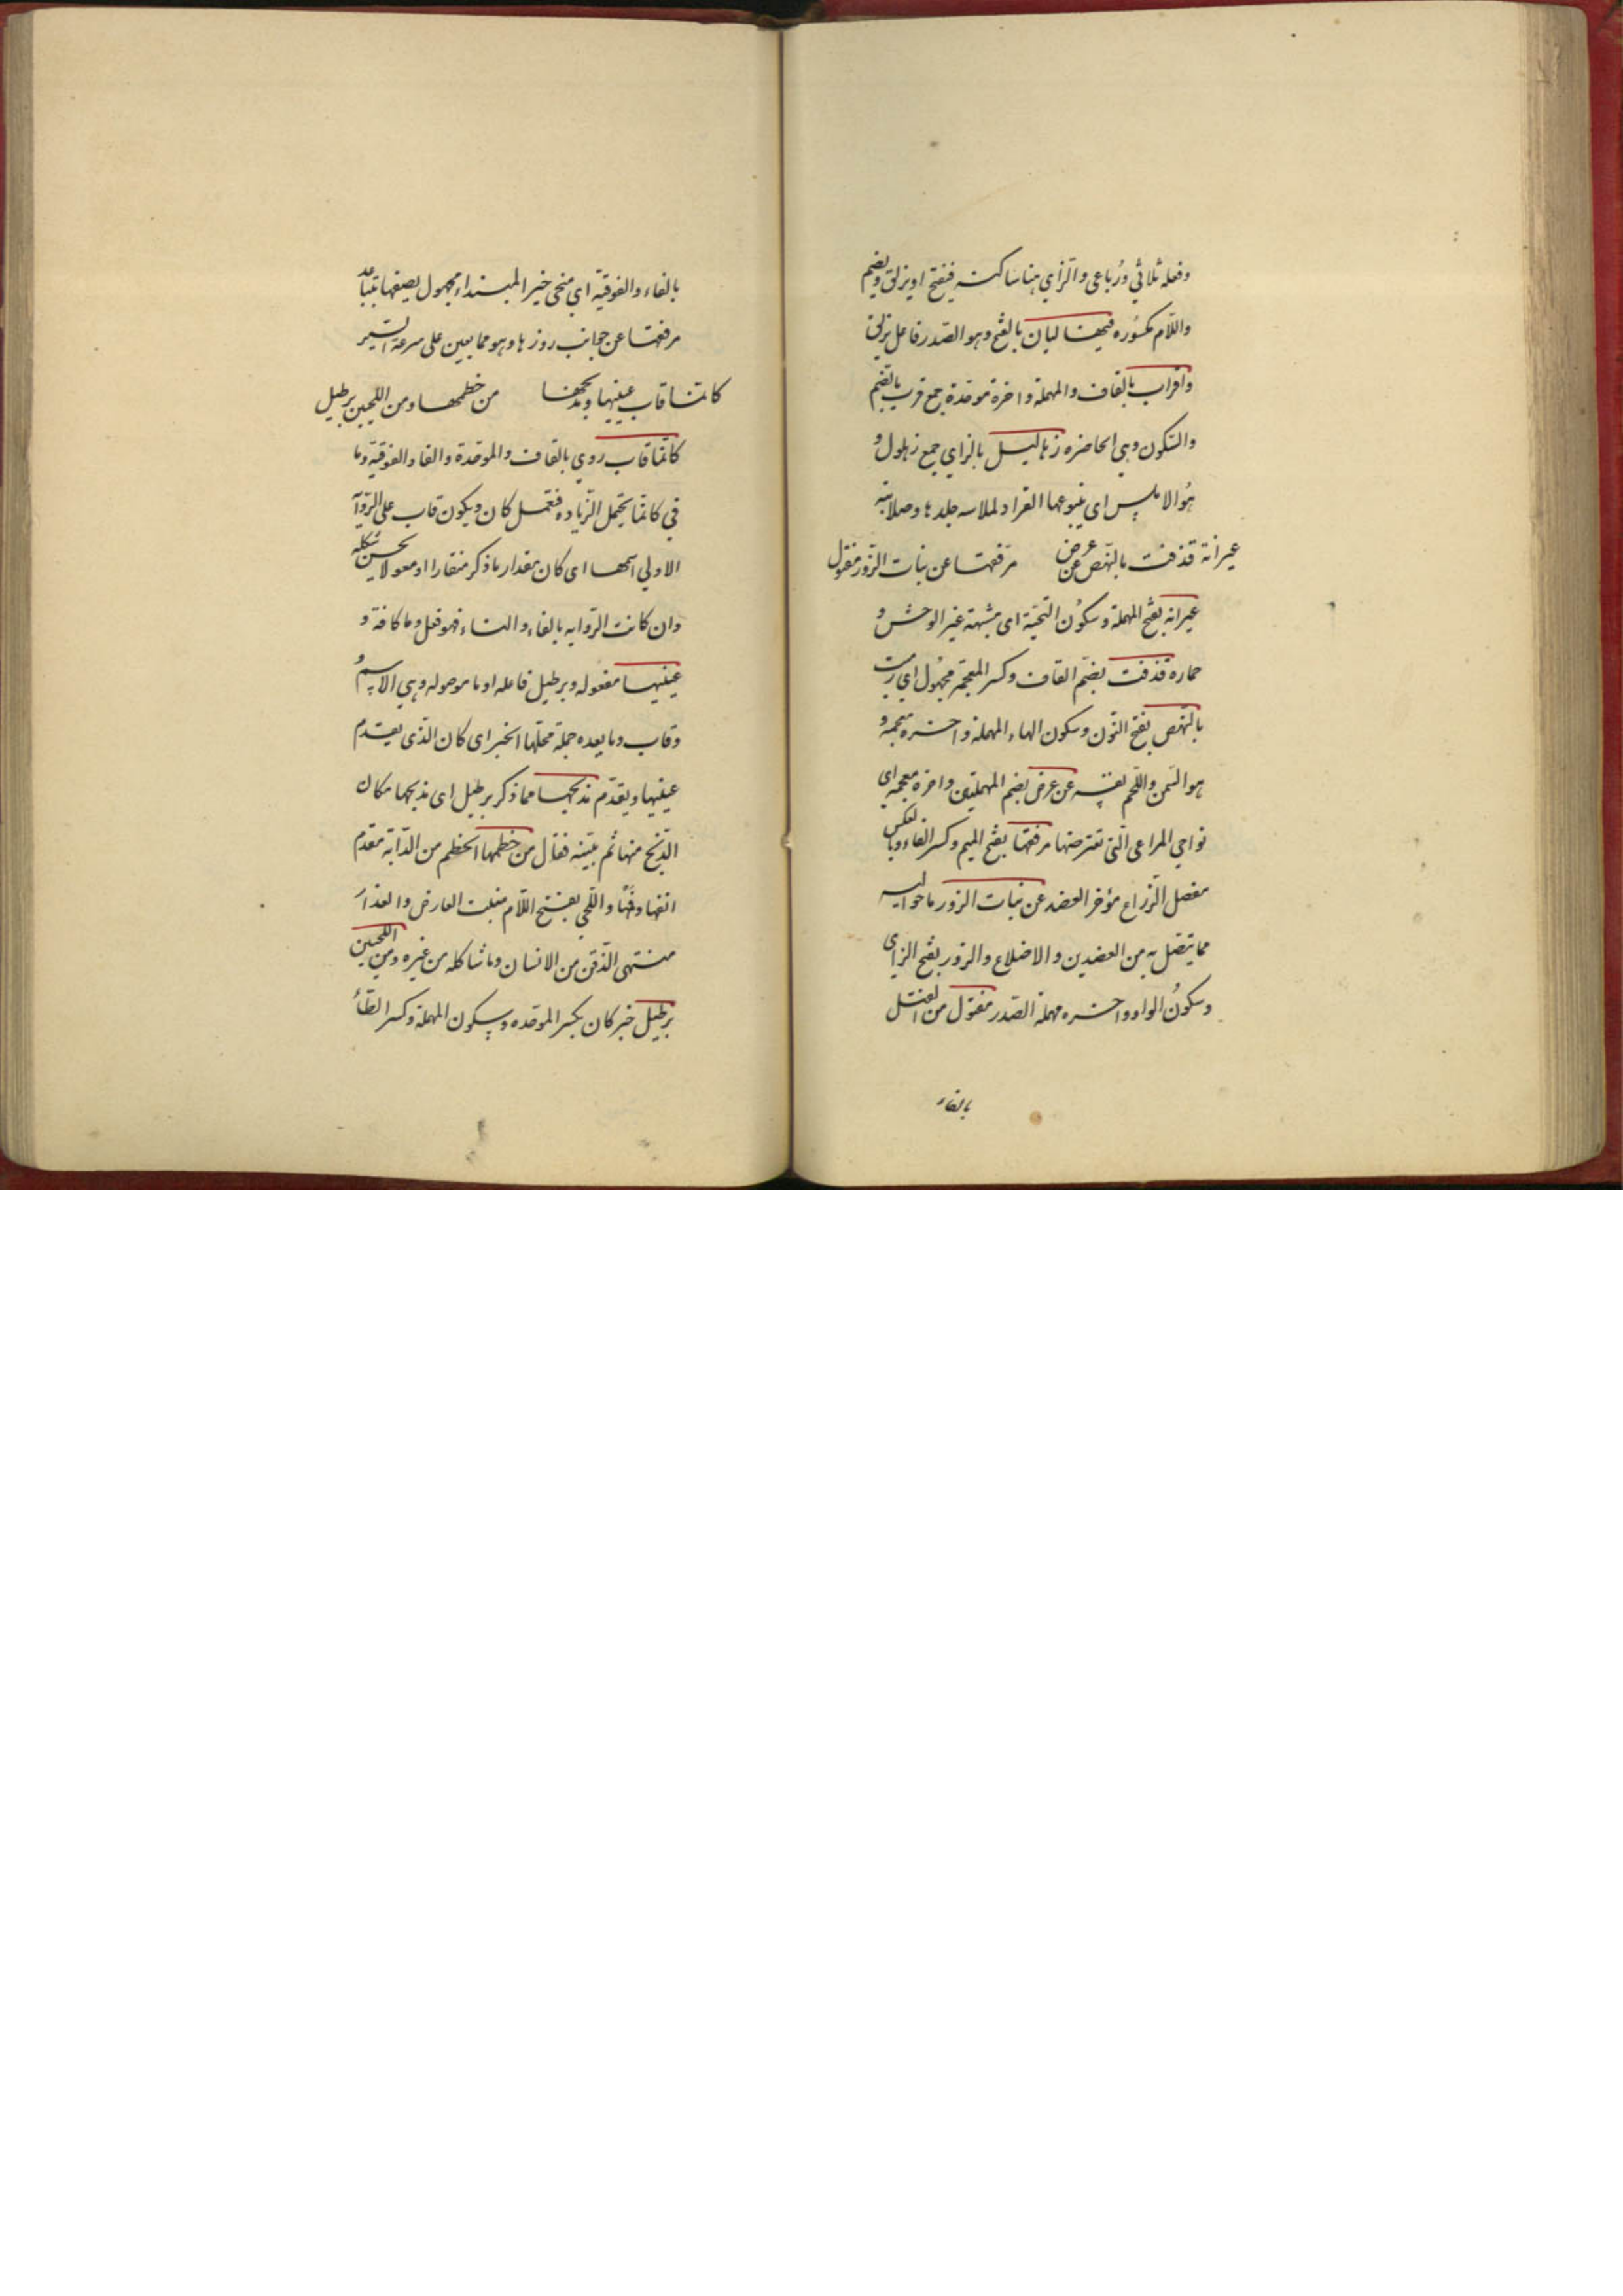 وفعله ثلاثي ورُباعى والزّاي هنا ساكنه فيفتح او يزلق ويضم
واللّام مكسُوره فيهما لبان بالفتح وهو الصّدر فاعل يزلق
واقراب بالقاف والمهملة واخرة موحّدة جمع قرب بالضّم
والسّكون وهي الخاصره زهاليل بالزاي جمع زهلول و
هُو الاملس اى ينبو عنها القراد لملاسه جلدها وصلابته
عيرانة قذفت بالنّحض عن عرض مرفقها عن بنات الزّور مفتول
عيرانه بفتح المهملة وسكُون التحتيّة اى مشبهة عير الوحش و
حماره قذفت بضمّ القاف وكسر المعجمة مجهُول اي رميت
بالنّحض بفتح النّون وسكون الحاء المهملة واخره معجمه و
هو السّمن واللّحم نفسه عن عرض بضم المهملتين واخره معجمه اى
نواحي المراعى الّتى تعترضها مرفقها بفتح الميم وكسر الفاء وبالعكس
مفصل الذّراع مؤخر العضد عن بنات الزور ما حواليه
مما يتصل به من العضدين والاضلاع والزور بفتح الزاى
وسكُون الواو واخره مهملة الصّدر مفتول من الفتل
بالفاء
بالفاء والفوقيّة اي منحى خبر المبتداء مجهول يصفها بتباعد
مرفقها عن جوانب زورها وهو مما يعين على سرعة السّير
كانّما قاب عينيها ومذبحها من خطمها ومن اللّحيين برطيل
كانّما قاب روي بالقاف والموحّدة والفا والفوقيّه وما
في كانّما يحتمل الزّياده فتعمل كان ويكون قاب على الرّواية
الاولي اسمها اى كان مقدار ما ذكر منقارا او معولا يحسن شكله
وان كانت الرّوايه بالفاء والتاء فهو فعل وما كافة و
عينيها مفعوله وبرطيل فاعله او ما موصوله وهي الاسم و
وقاب وما بعده جملة محلّها الخبر اى كان الّذى يتقدم
عينيها ويقدّم مذبحها مما ذكر برطيل اى مذبحها مكان
الذّبح منها ثم بيّنه فقال من خطمها الخطم من الدّابة مقدم
انفها وفمها واللّحي بفتح اللّام منبت العارض والعذار
منتهى الذّقن من الانسان وما شاكله من غيره ومن اللّحيين
برطيل خبر كان بكسر الموحّده وسكون المهملة وكسر الطّاء